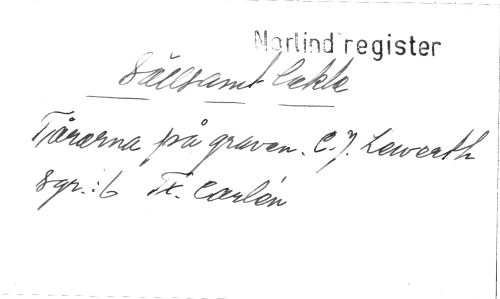 Norlind register
Sällsamt lekte
Tårarna på graven. C. J. Lewerth
sgr. :b Tx. Carlén